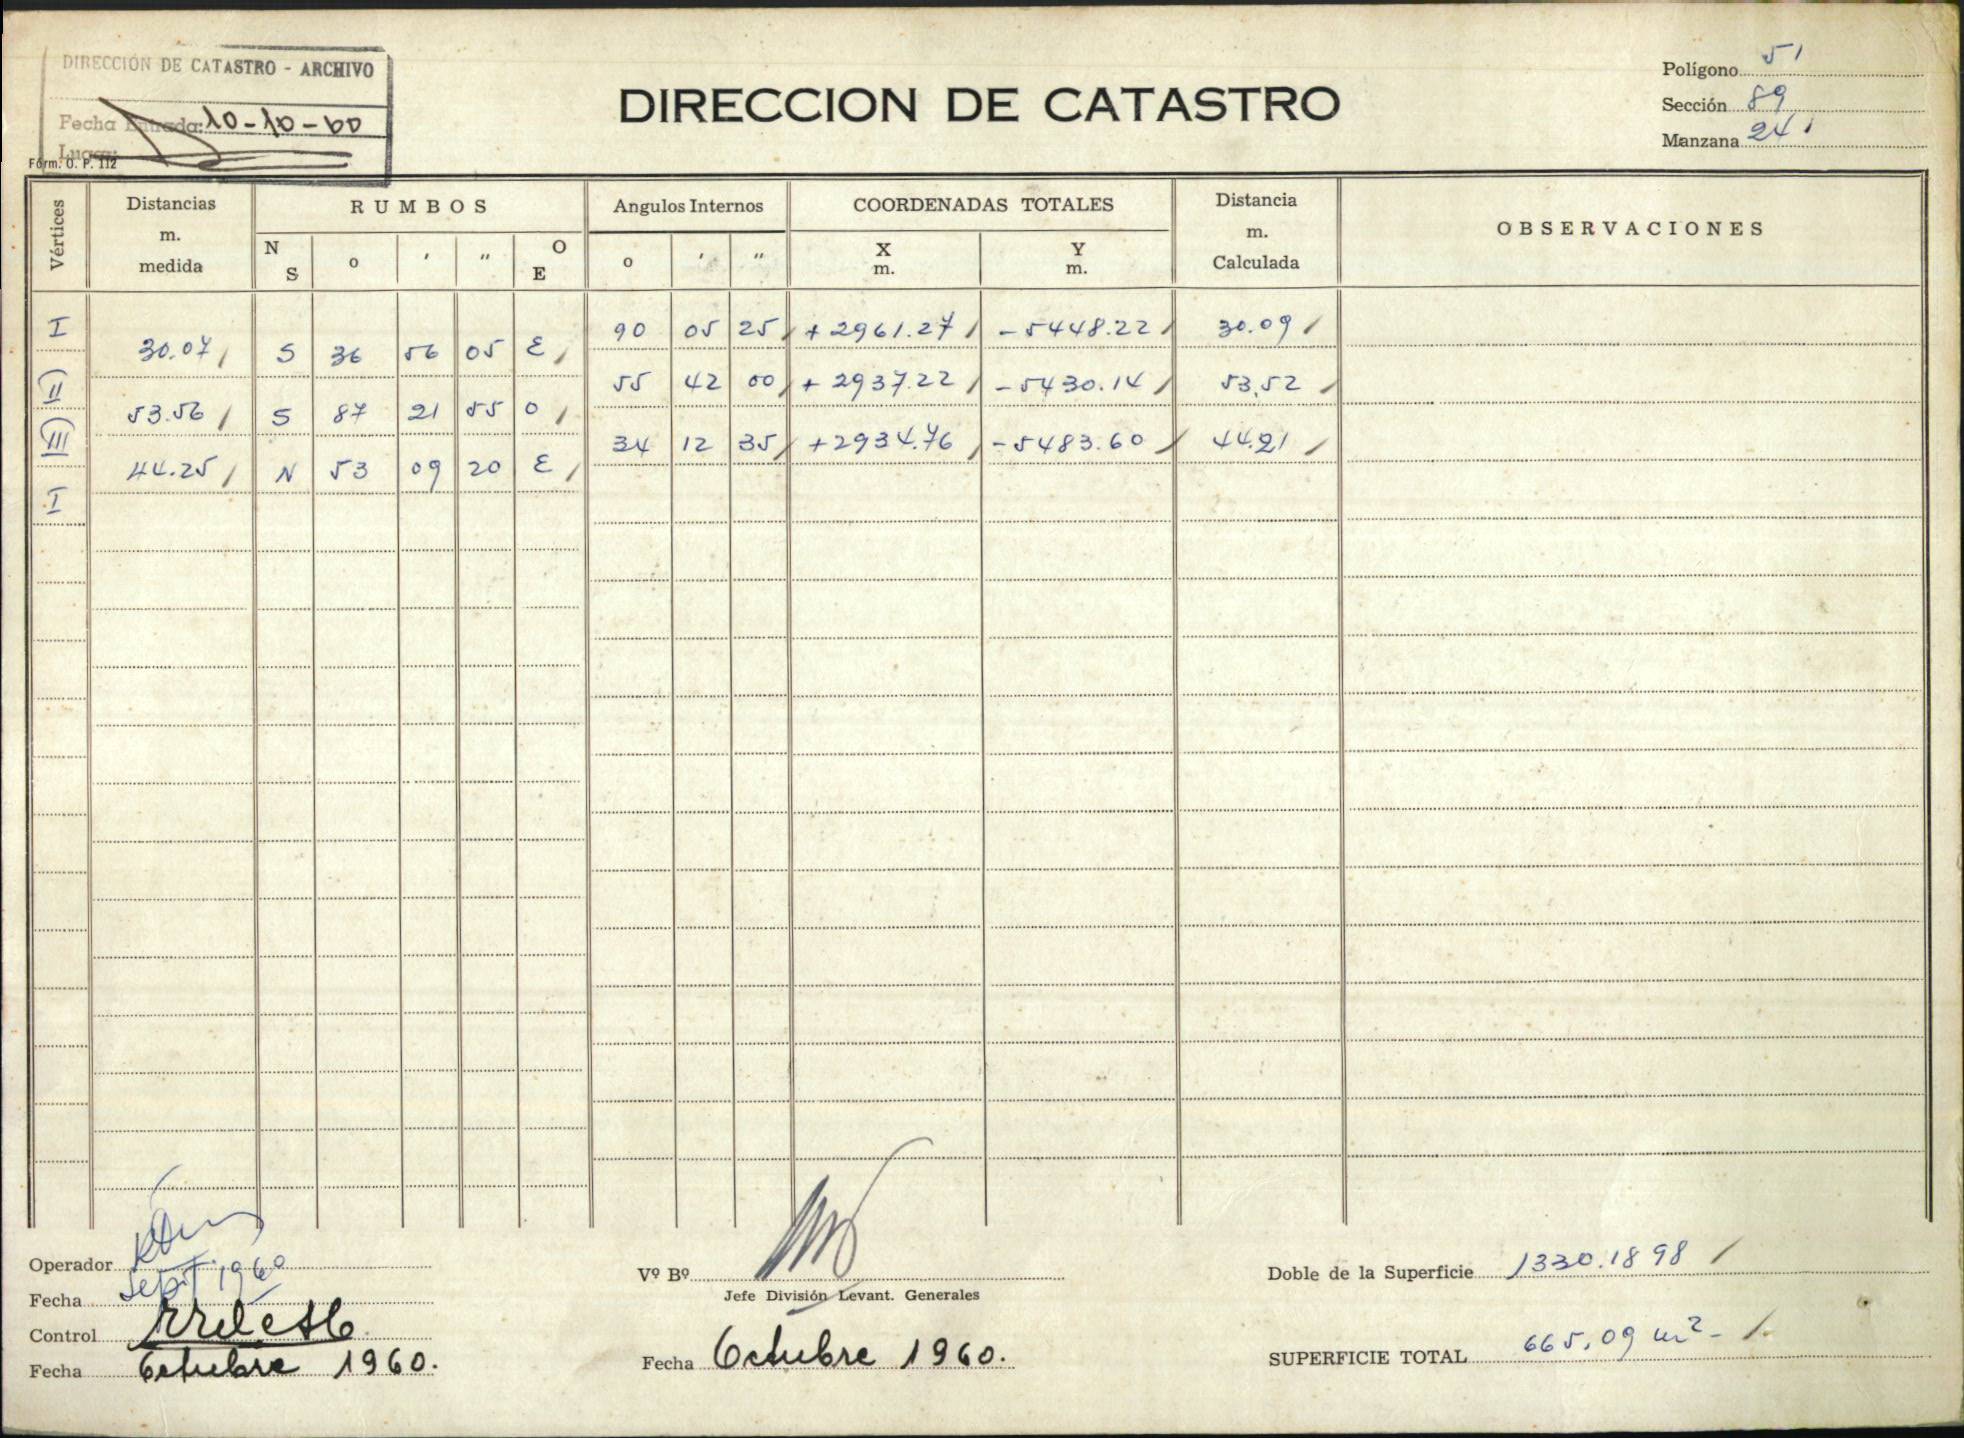 DIRECCIÓN DE CATASTRO - ARCHIVO
Fecha Entrada: 10-10-60
Lugar:
Fórm. O. P. 112
DIRECCION DE CATASTRO
Polígono 51
Sección 89
Manzana 24
Vértices
Distancias m. medida
RUMBOS
N S o ' " O E
Angulos Internos
o ' "
COORDENADAS TOTALES
X m. Y m.
Distancia m. Calculada
OBSERVACIONES
I 90 05 25 +2961.27 -5448.22 30.09
30.07 S 36 56 05 E
II 55 42 00 +2937.22 -5430.14 53.52
53.56 S 87 21 55 O
III 34 12 35 +2934.76 -5483.60 44.21
44.25 N 53 09 20 E
I
Operador
Fecha Sept. 1960
Control
Fecha Octubre 1960.
Vº Bº
Jefe División Levant. Generales
Fecha Octubre 1960.
Doble de la Superficie 1330.1898
SUPERFICIE TOTAL 665.09 m2-